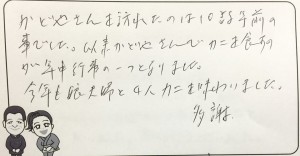 かどやさんを訪れたのは10数年前の
事でした。以来かどやさんでカニを食すの
が年中行事の一つとなりました。
今年も娘夫婦と4人カニを味わいました。
多謝.